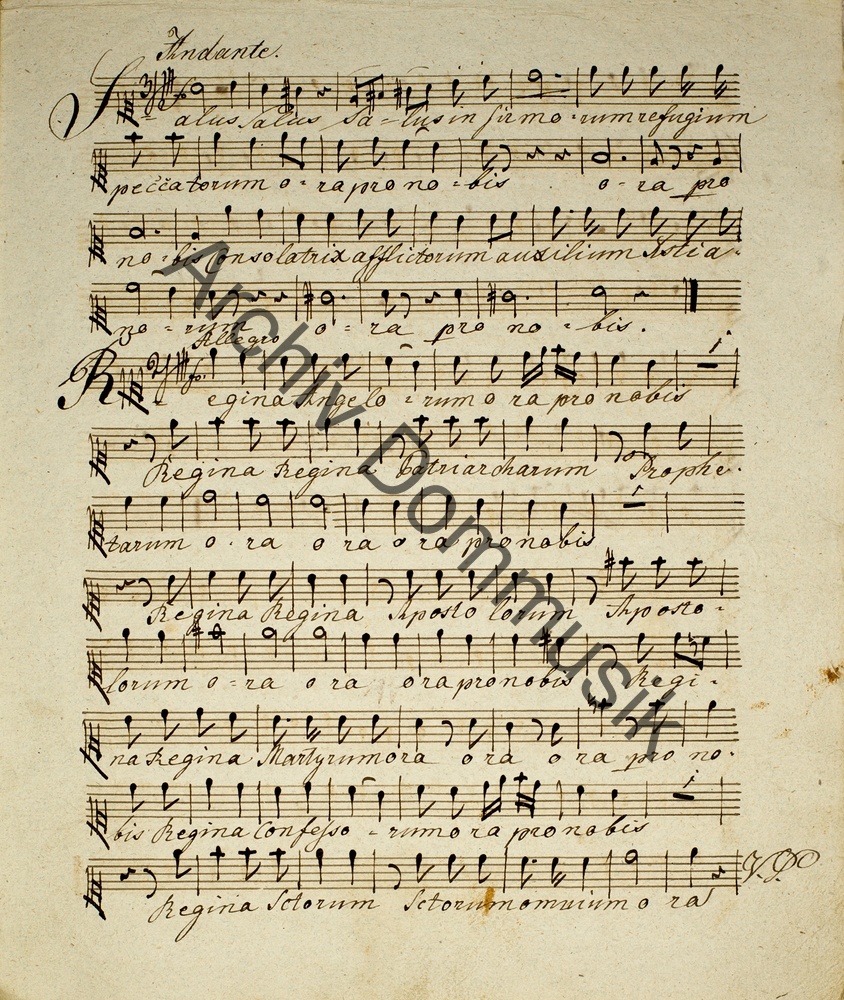 Andante.
Salus Salus Sa-lus in firmo-rum refugium
peccatorum o-ra pro no-bis o-ra pro
no-bis Consolatrix afflictorum auxilium Xstia-
no-rum o-ra pro no-bis.
Allegro
Regina Angelo-rum o ra pro nobis
Regina Regina Patriarcharum Prophe-
tarum o-ra o ra o ra pro nobis
Regina Regina Aposto lorum Aposto-
lorum o-ra o ra o ra pro nobis Regi-
na Regina Martyrum ora o ra o ra pro no-
bis Regina Confesso-rum o ra pro nobis
Regina Sctorum Sctorum omnium o ra
V.P.
Archiv Dommusik